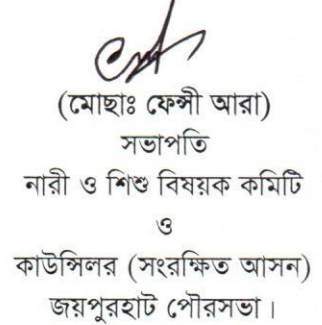 (মোছাঃ ফেন্সী আরা)
সভাপতি
নারী ও শিশু বিষয়ক কমিটি
ও
কাউন্সিলর (সংরক্ষিত আসন)
জয়পুরহাট পৌরসভা।